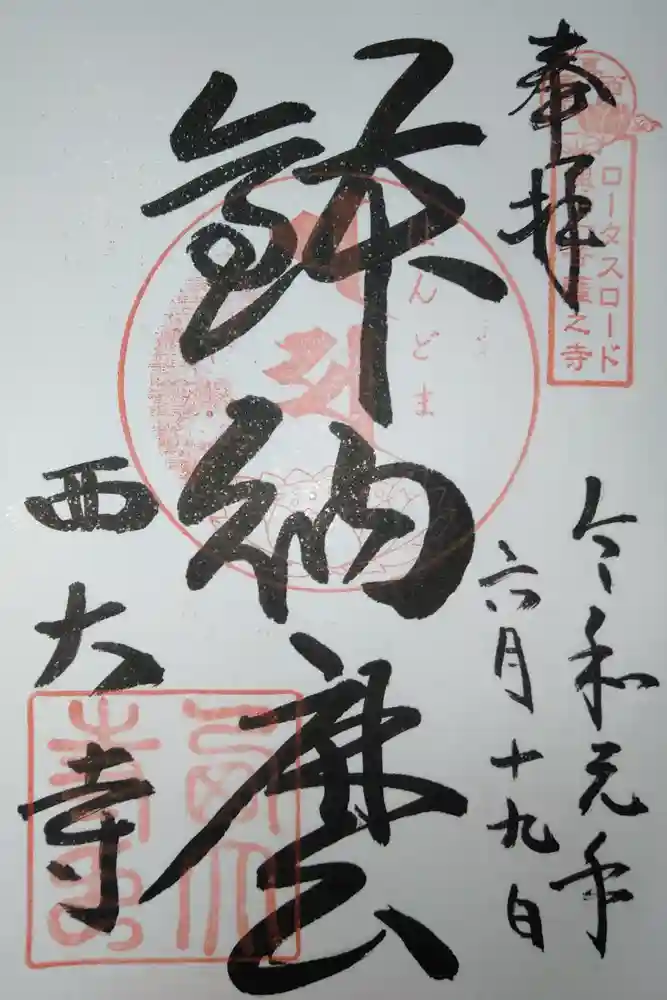 奉拝
ロータスロード
令和元年
六月十九日
はんどま
鉢納麿
西大寺